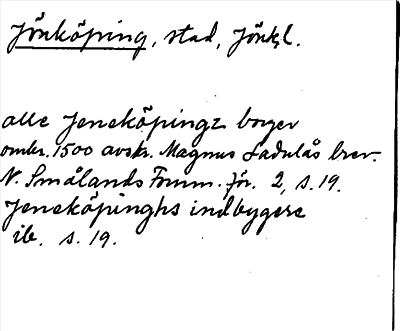 Jönköping, stad, Jönk.l.
alle Jeneköpingz borger
omkr. 1500 avskr. Magnus Ladulås brev.
N. Smålands Fornm. för. 2, s. 19.
Jeneköpinghs indbygere
ib. s. 19.